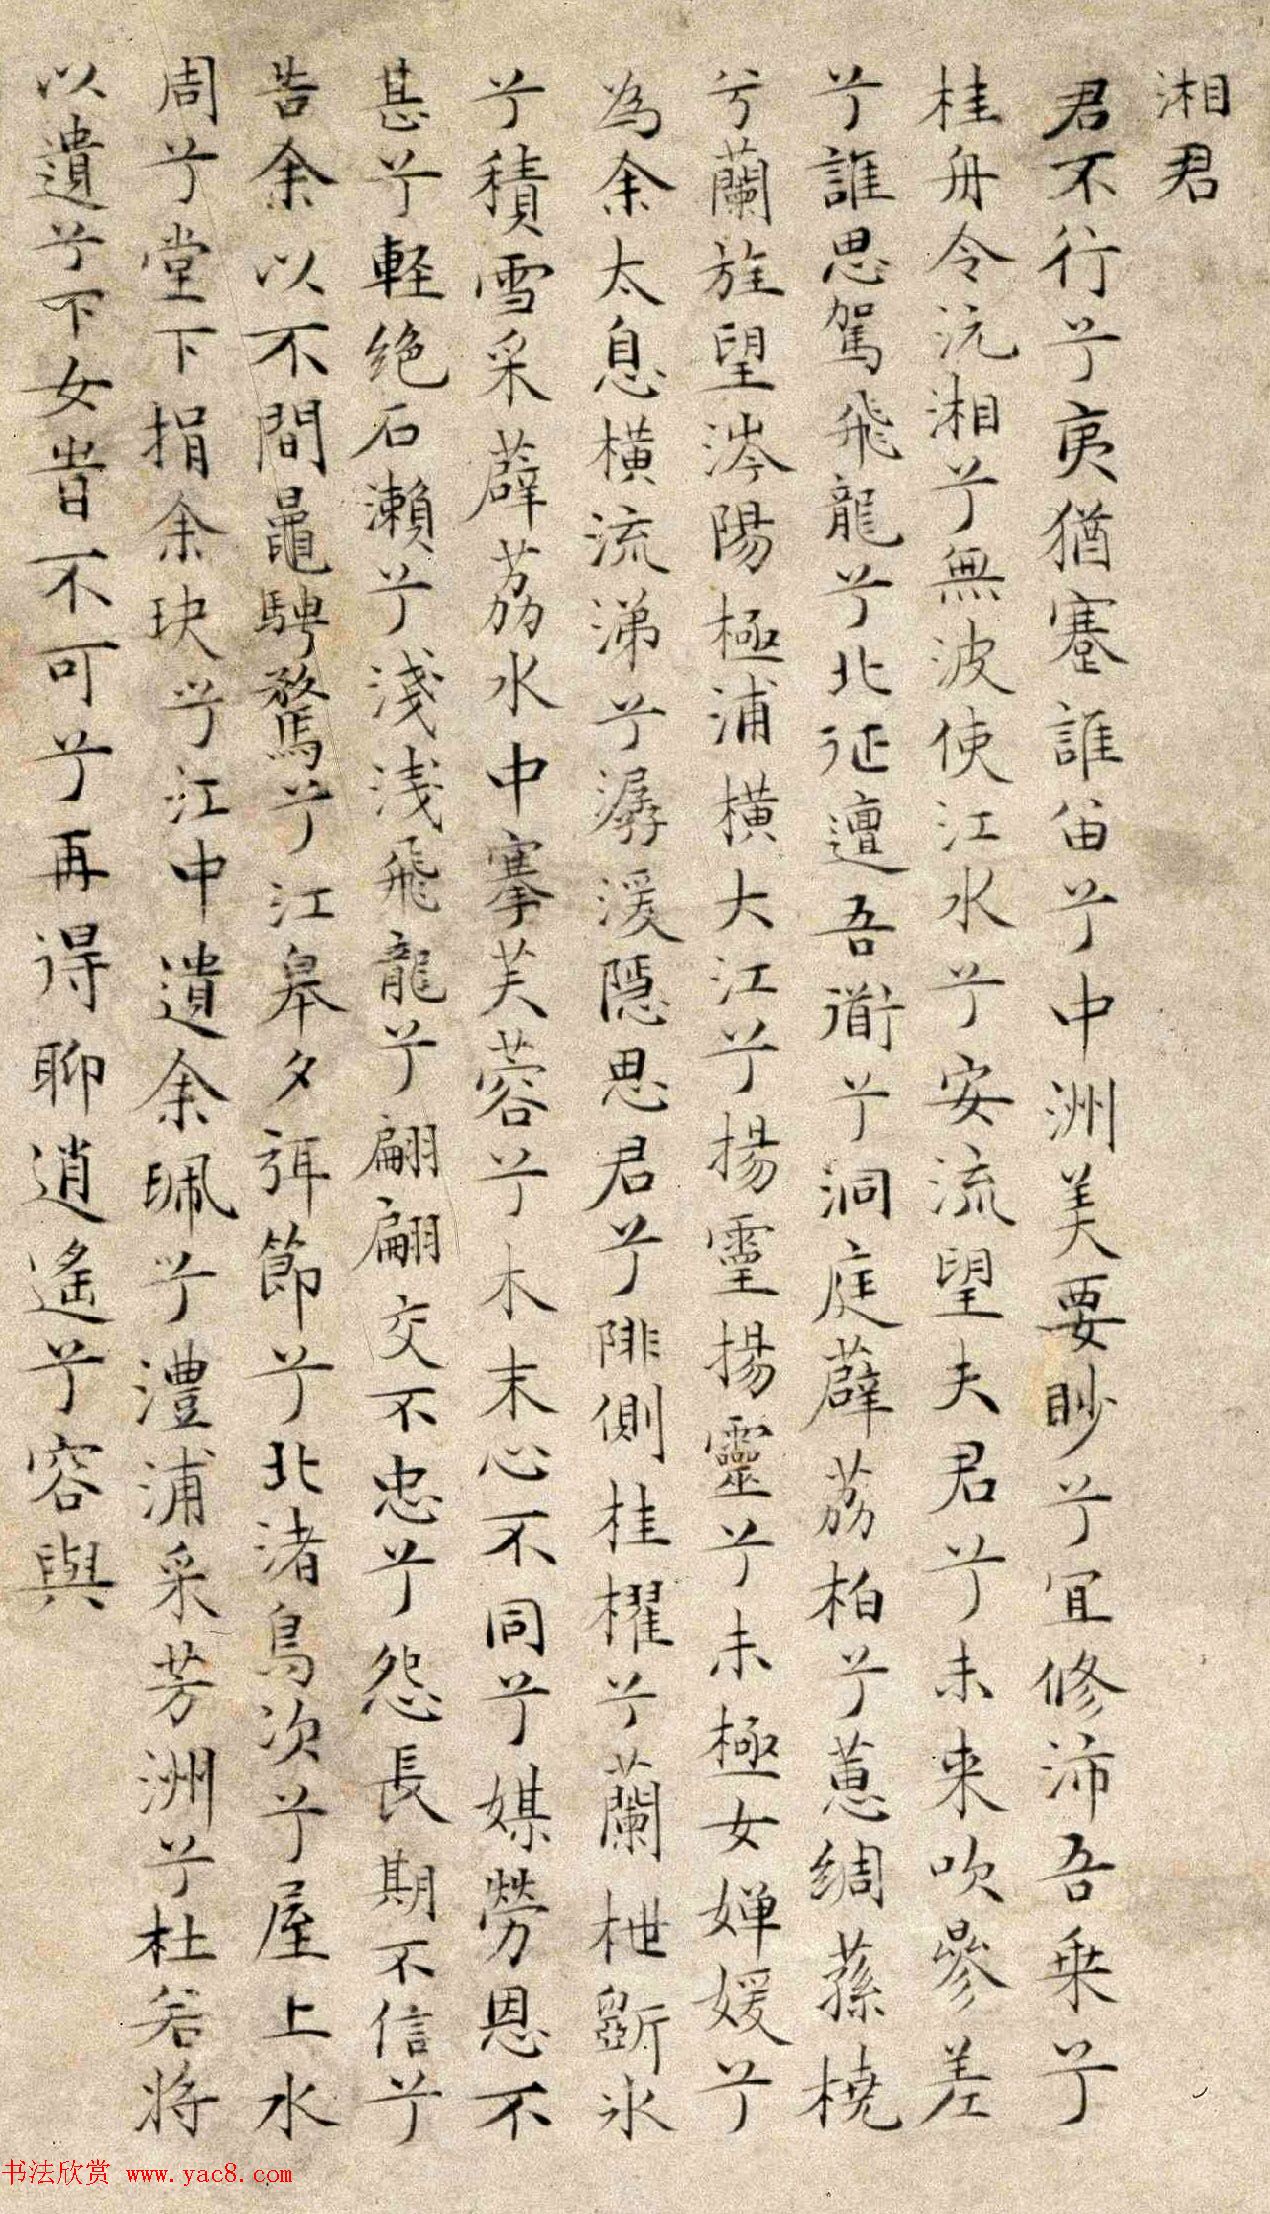 湘君
君不行兮夷猶蹇誰留兮中洲美要眇兮宜修沛吾乗兮
桂舟令沅湘兮無波使江水兮安流望夫君兮未来吹參差
兮誰思駕飛龍兮北征邅吾衜兮洞庭薜荔柏兮蕙綢蓀橈
兮蘭旌望涔陽極浦橫大江兮揚靈揚靈兮未極女嬋媛兮
為余太息橫流涕兮潺湲隱思君兮陫側桂櫂兮蘭枻斲冰
兮積雪采薜荔水中搴芙蓉兮木末心不同兮媒勞恩不
甚兮軽絕石瀨兮淺淺飛龍兮翩翩交不忠兮怨長期不信兮
告余以不間鼂騁騖兮江皋夕弭節兮北渚鳥次兮屋上水
周兮堂下捐余玦兮江中遺余珮兮澧浦采芳洲兮杜若將
以遺兮下女旹不可兮再得聊逍遙兮容與
书法欣赏 www.yac8.com